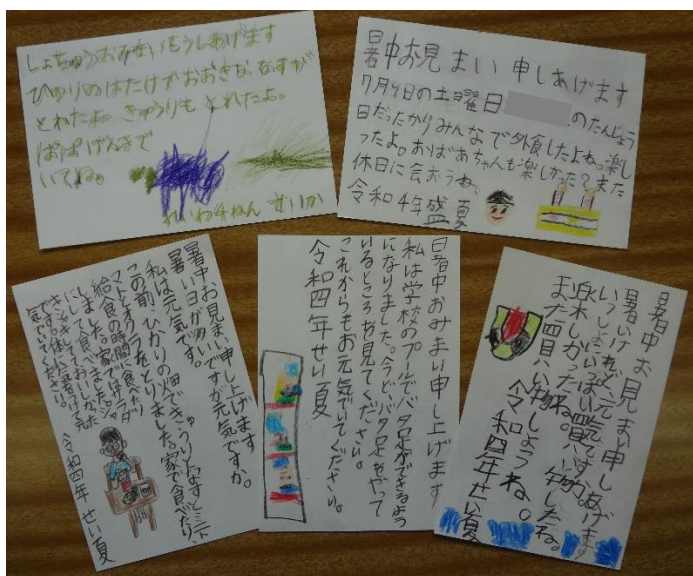 しょちゅうおみまいもうしあげます
ひかりのはたけでおおきななすが
とれたよ。きゅうりもとれたよ。
ぱぱげんきで
いてね。
れいわ4ねん せいか
暑中お見まい 申しあげます
7月9日の土曜日 のたんじょう
日だったからみんなで外食したよね。楽し
かったよ。おばあちゃんも楽しかった?また
休日に会おうね。
令和4年盛夏
暑中お見まい申し上げます
暑い日が多いですが元気ですか。
私は元気です。
この前、ひかりの畑できゅうりとなすとミニト
マトとオクラをとりました。家で食べたり、
給食の時間で食べたり
しました。家では
して食べました。
にして食べおいしかった
です。体に気をつけて元
気でいてください。
令和四年 せい夏
暑中おみまい申し上げます
私は学校のプールでバタ足ができるよう
になりました。今ど、バタ足をやって
いるところを見てください。
これからもお元気でいてください。
令和四年せい夏
暑中お見まい申しあげます
暑いけれど元気ですか。
いっしょにいっぱい買い物したね。
楽しかったね。
また買い物しようね。
令和四年せい夏